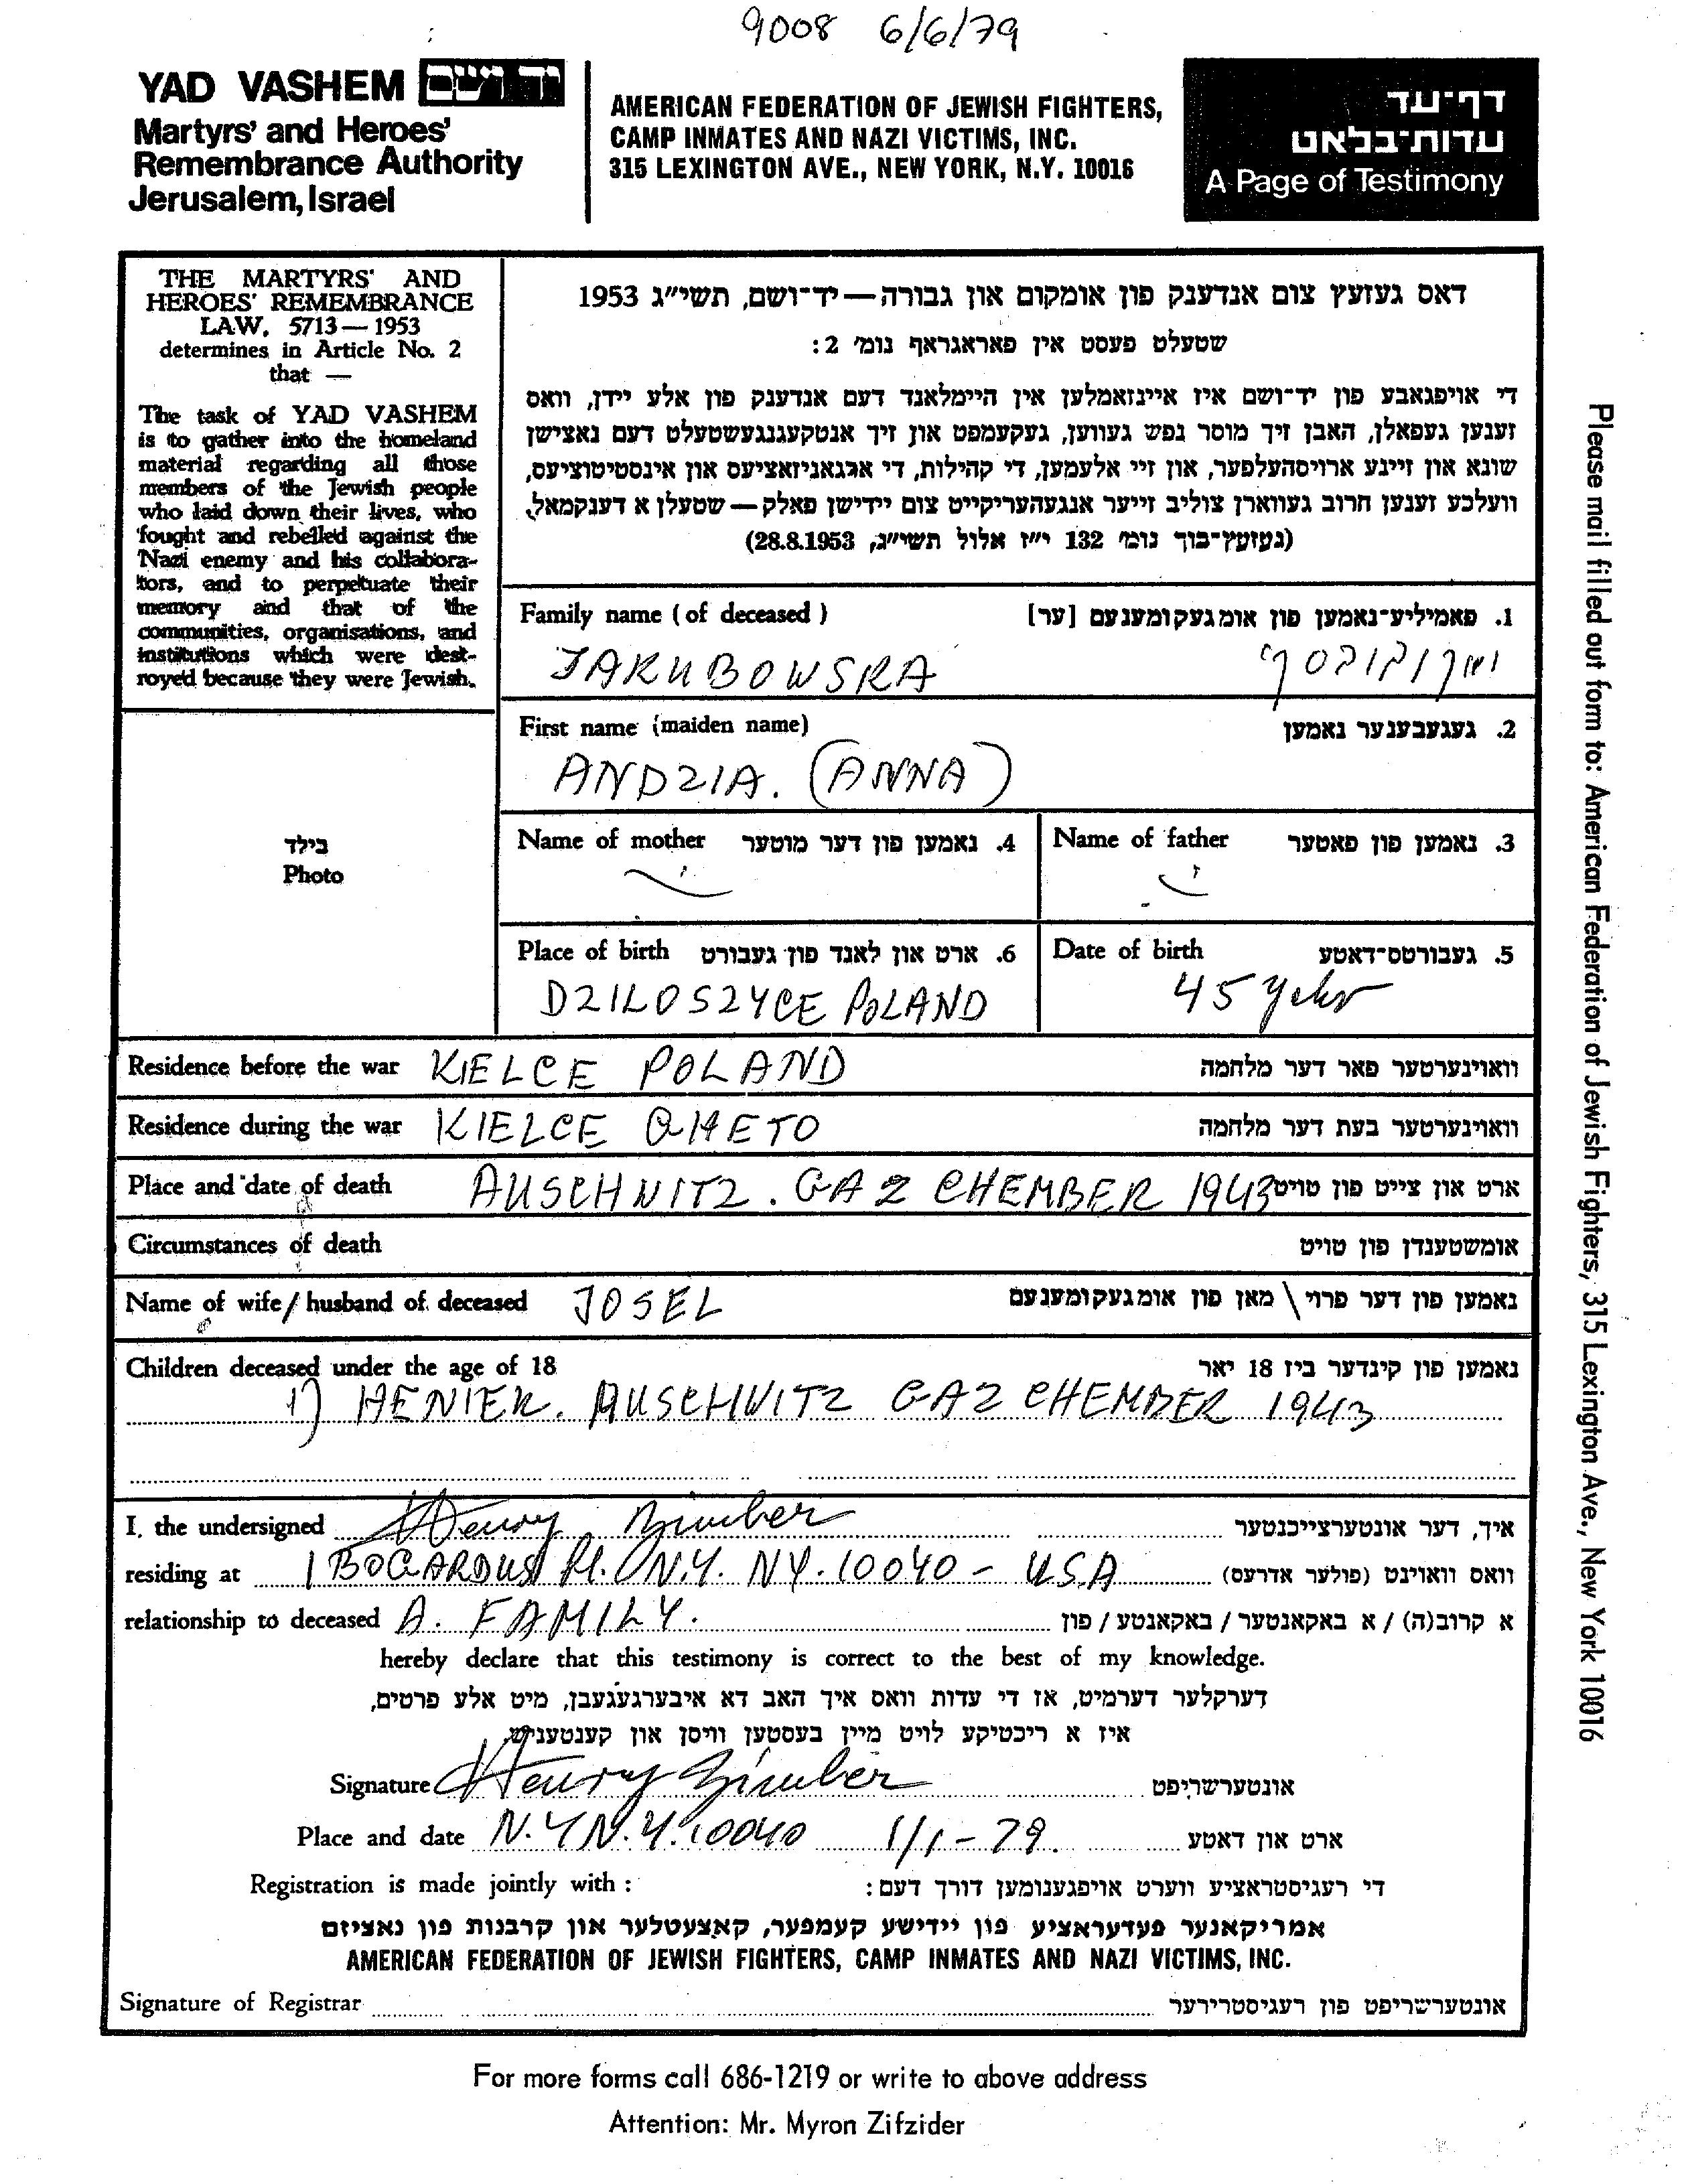 9008 6/6/79
YAD VASHEM יד ושם
Martyrs' and Heroes'
Remembrance Authority
Jerusalem, Israel
AMERICAN FEDERATION OF JEWISH FIGHTERS,
CAMP INMATES AND NAZI VICTIMS, INC.
315 LEXINGTON AVE., NEW YORK, N.Y. 10016
דף-עד
עדות-בלאט
A Page of Testimony
THE MARTYRS' AND
HEROES' REMEMBRANCE
LAW, 5713—1953
determines in Article No. 2
that —
The task of YAD VASHEM
is to gather into the homeland
material regarding all those
members of the Jewish people
who laid down their lives, who
fought and rebelled against the
Nazi enemy and his collabora-
tors, and to perpetuate their
memory and that of the
communities, organisations, and
institutions which were dest-
royed because they were Jewish.
דאס געזעץ צום אנדענק פון אומקום און גבורה — יד-ושם, תשי״ג 1953
שטעלט פעסט אין פאראגראף נומ' 2:
די אויפגאבע פון יד-ושם איז איינזאמלען אין היימלאנד דעם אנדענק פון אלע יידן, וואס
זענען געפאלן, האבן זיך מוסר נפש געווען, געקעמפט און זיך אנטקעגנגעשטעלט דעם נאצישן
שונא און זיינע ארויסהעלפער, און זיי אלעמען, די קהילות, די ארגאניזאציעס און אינסטיטוציעס,
וועלכע זענען חרוב געווארן צוליב זייער אנגעהעריקייט צום יידישן פאלק — שטעלן א דענקמאל.
(געזעץ-בוך נומ' 132 י״ז אלול תשי״ג, 28.8.1953)
Family name (of deceased) 1. פאמיליע-נאמען פון אומגעקומענעם [ער]
JAKUBOWSKA
First name (maiden name) 2. געגעבענער נאמען
ANDZIA. (ANNA)
בילד
Photo
Name of mother 4. נאמען פון דער מוטער
Name of father 3. נאמען פון פאטער
Place of birth 6. ארט און לאנד פון געבורט
DZILOSZYCE POLAND
Date of birth 5. געבורטס-דאטע
45 yehr
Residence before the war KIELCE POLAND וואוינערטער פאר דער מלחמה
Residence during the war KIELCE GHETO וואוינערטער בעת דער מלחמה
Place and date of death AUSCHWITZ. GAZ CHEMBER 1943 ארט און צייט פון טויט
Circumstances of death אומשטענדן פון טויט
Name of wife/husband of deceased JOSEL נאמען פון דער פרוי \ מאן פון אומגעקומענעם
Children deceased under the age of 18 נאמען פון קינדער ביז 18 יאר
1) HENIEK. AUSCHWITZ GAZ CHEMBER 1943
I, the undersigned Henry Zimber איך, דער אונטערצייכנטער
residing at 1 BOGARDUS Pl. N.Y. NY. 10040 - USA וואס וואוינט (פולער אדרעס)
relationship to deceased A. FAMILY. א קרוב(ה) / א באקאנטער / באקאנטע / פון
hereby declare that this testimony is correct to the best of my knowledge.
דערקלער דערמיט, אז די עדות וואס איך האב דא איבערגעגעבן, מיט אלע פרטים,
איז א ריכטיקע לויט מיין בעסטען וויסן און קענטעניש.
Signature Henry Zimber אונטערשריפט
Place and date N.Y N.Y. 10040 1/1-79. ארט און דאטע
Registration is made jointly with: די רעגיסטראציע ווערט אויפגענומען דורך דעם:
אמריקאנער פעדעראציע פון יידישע קעמפער, קאצעטלער און קרבנות פון נאציזם
AMERICAN FEDERATION OF JEWISH FIGHTERS, CAMP INMATES AND NAZI VICTIMS, INC.
Signature of Registrar אונטערשריפט פון רעגיסטרירער
For more forms call 686-1219 or write to above address
Attention: Mr. Myron Zifzider
Please mail filled out form to: American Federation of Jewish Fighters, 315 Lexington Ave., New York 10016